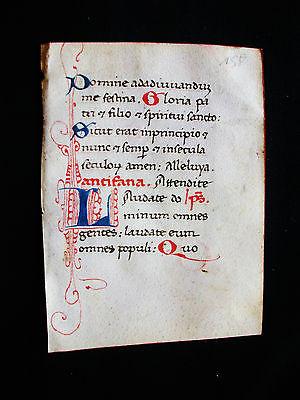 Domine ad adiuvandum
me festina. Gloria pa
tri et filio et spiritui sancto:
Sicut erat in principio et
nunc et semper et in secula
seculorum amen: Alleluya.
antifana. Attendite
Laudate do ps
minum omnes
gentes: laudate eum
omnes populi: Quo